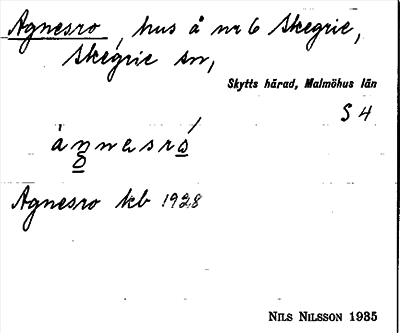 Agnesro, hus å nr 6 Skegrie,
Skegrie sn,
Skytts härad, Malmöhus län
S 4
Agnesro kb 1928
NILS NILSSON 1935